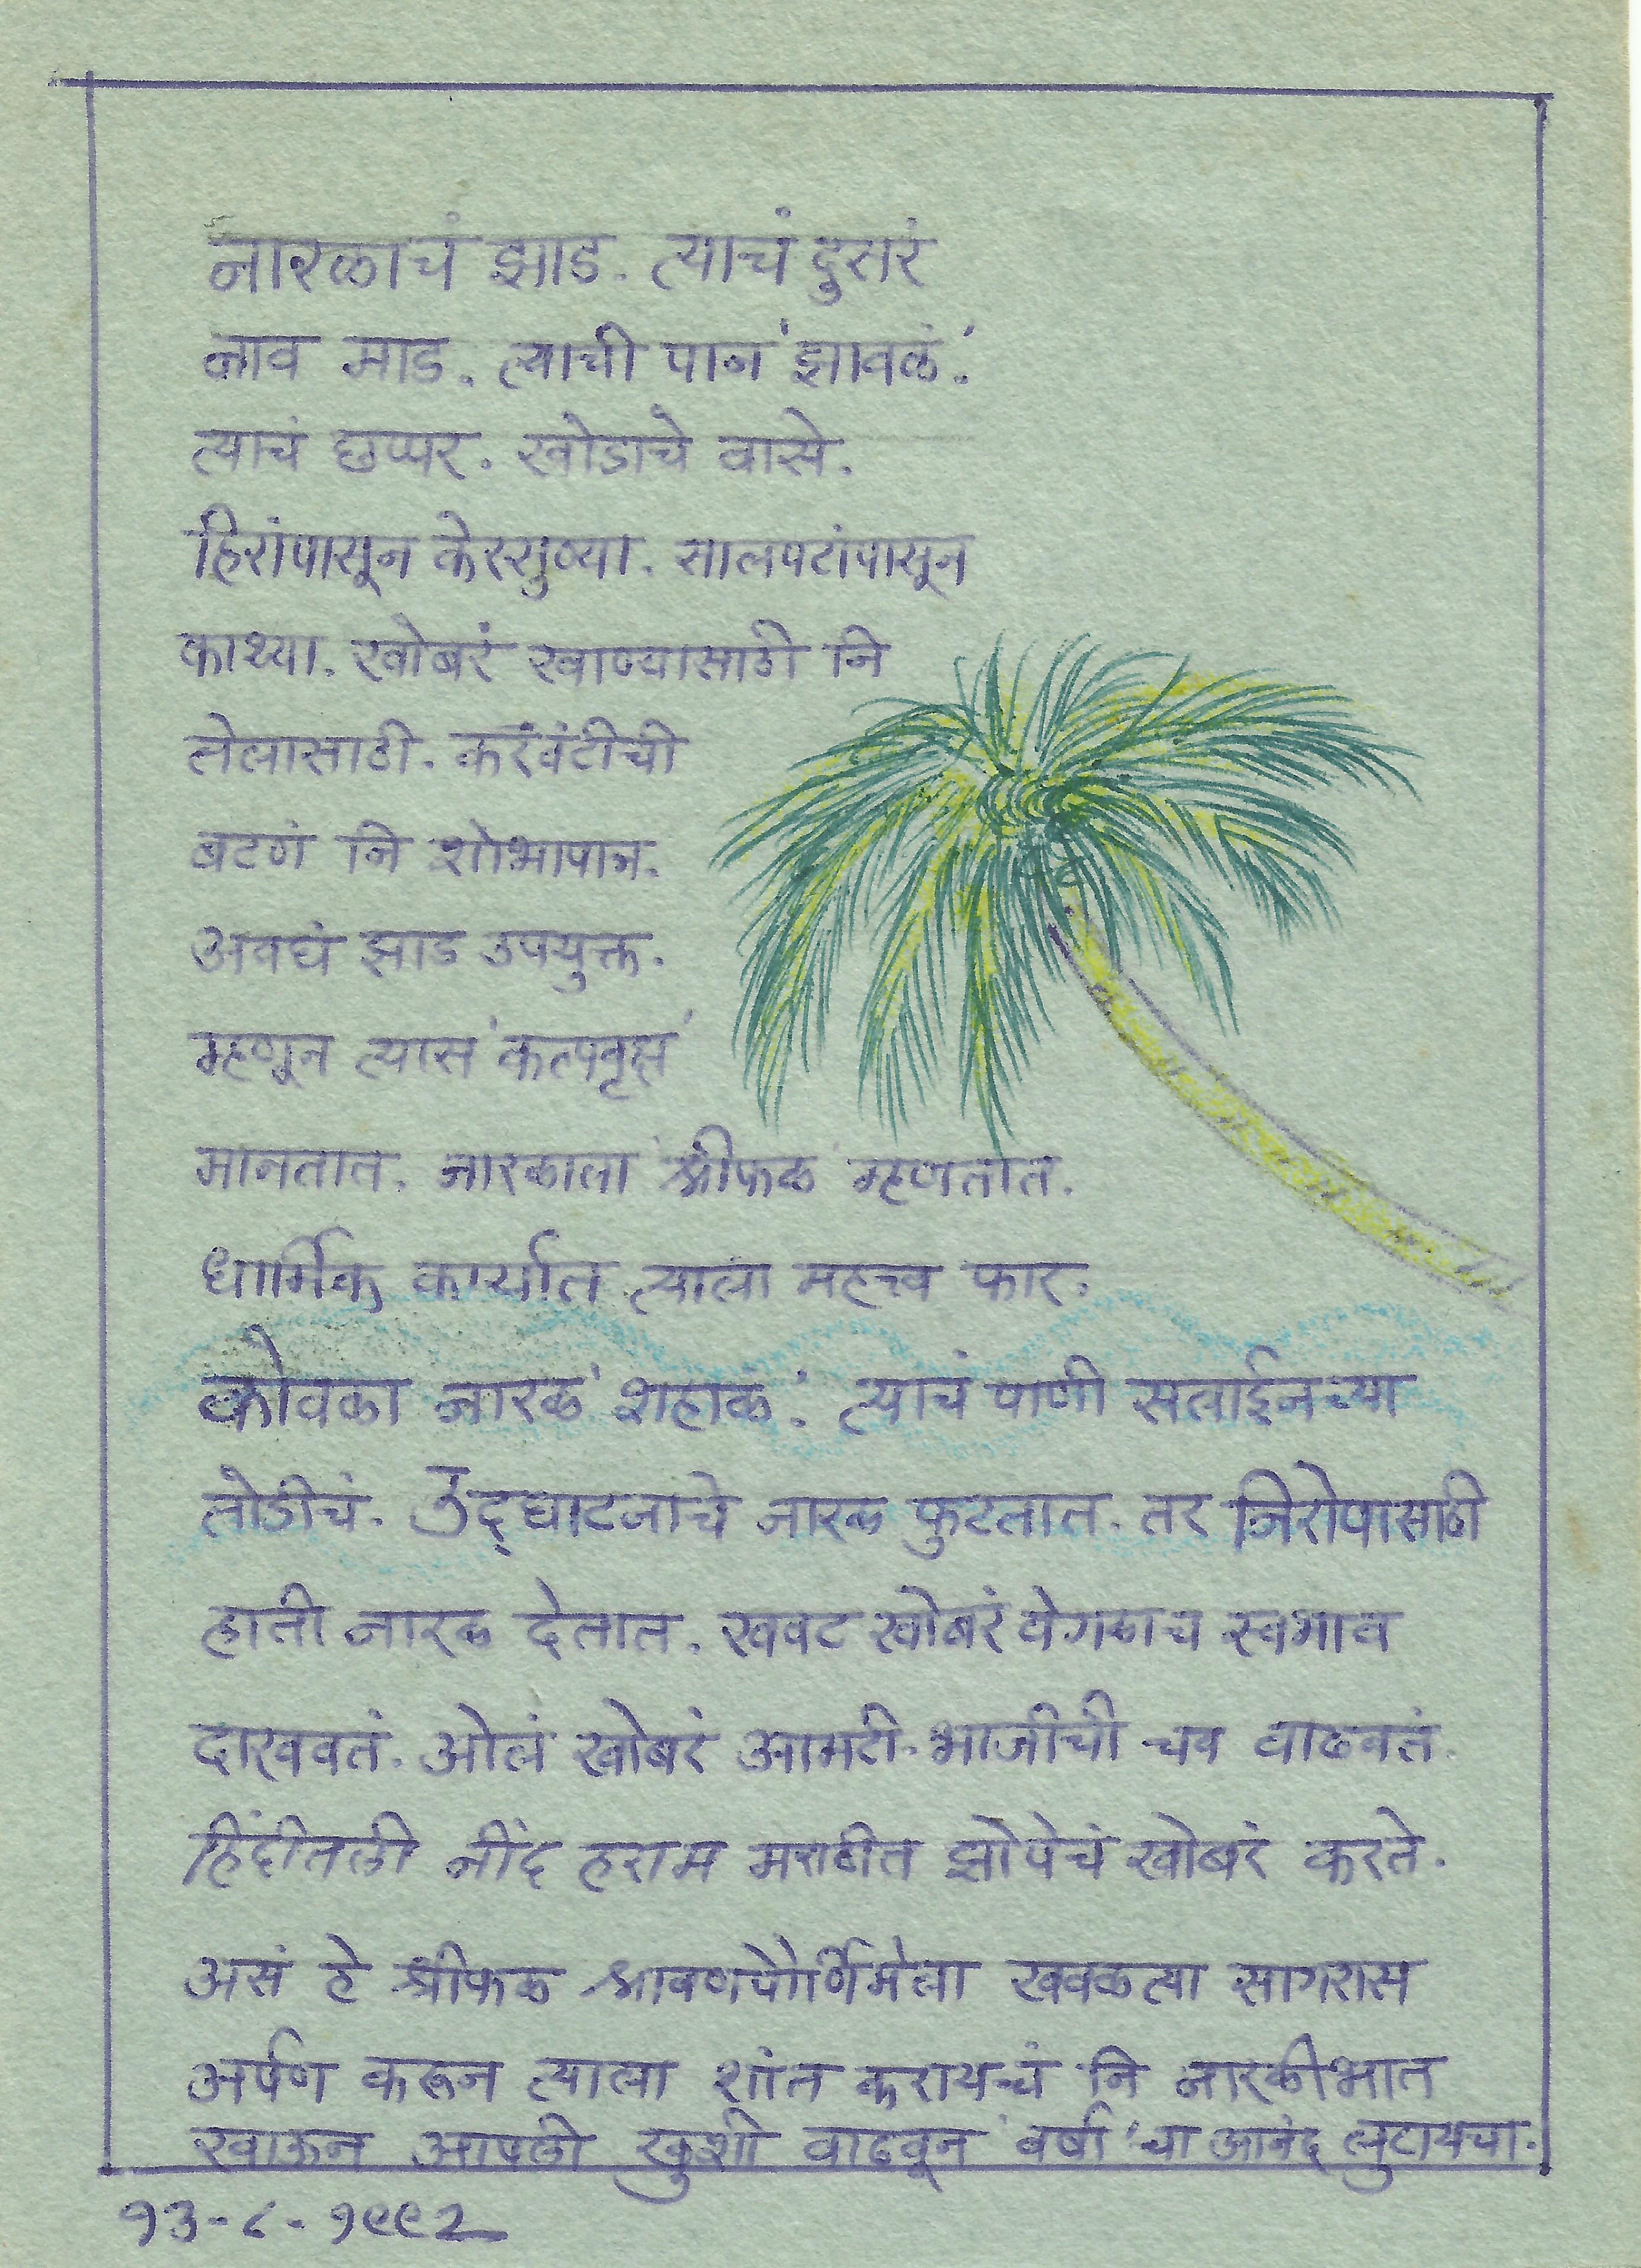 नारळाचं झाड. त्याचं दुसरं
नाव माड. त्याची पानं 'झावळं'.
त्याचं छप्पर. खोडाचे वासे.
हिरांपासून केरसुण्या. सालपटांपासून
काथ्या. खोबरं खाण्यासाठी नि
तेलासाठी. करवंटीची
बटणं नि शोभापात्र.
अवघं झाड उपयुक्त.
म्हणून त्यास 'कल्पवृक्ष'
मानतात. नारळाला 'श्रीफळ' म्हणतात.
धार्मिक कार्यात त्याला महत्त्व फार.
कोवळा नारळ 'शहाळं'. त्याचं पाणी सलाईनच्या
तोडीचं. उद्घाटनाचे नारळ फुटतात. तर निरोपासाठी
हाती नारळ देतात. खवट खोबरं वेगळाच स्वभाव
दाखवतं. ओलं खोबरं आमटी-भाजीची चव वाढवतं.
हिंदीतली नींद हराम मराठीत झोपेचं खोबरं करते.
असं हे श्रीफळ श्रावणपौर्णिमेला खवळत्या सागरास
अर्पण करून त्याला शांत करायचं नि नारळीभात
खाऊन आपली खुशी वाढवून 'वर्षा'चा आनंद लुटायचा.
१३-८-१९९२